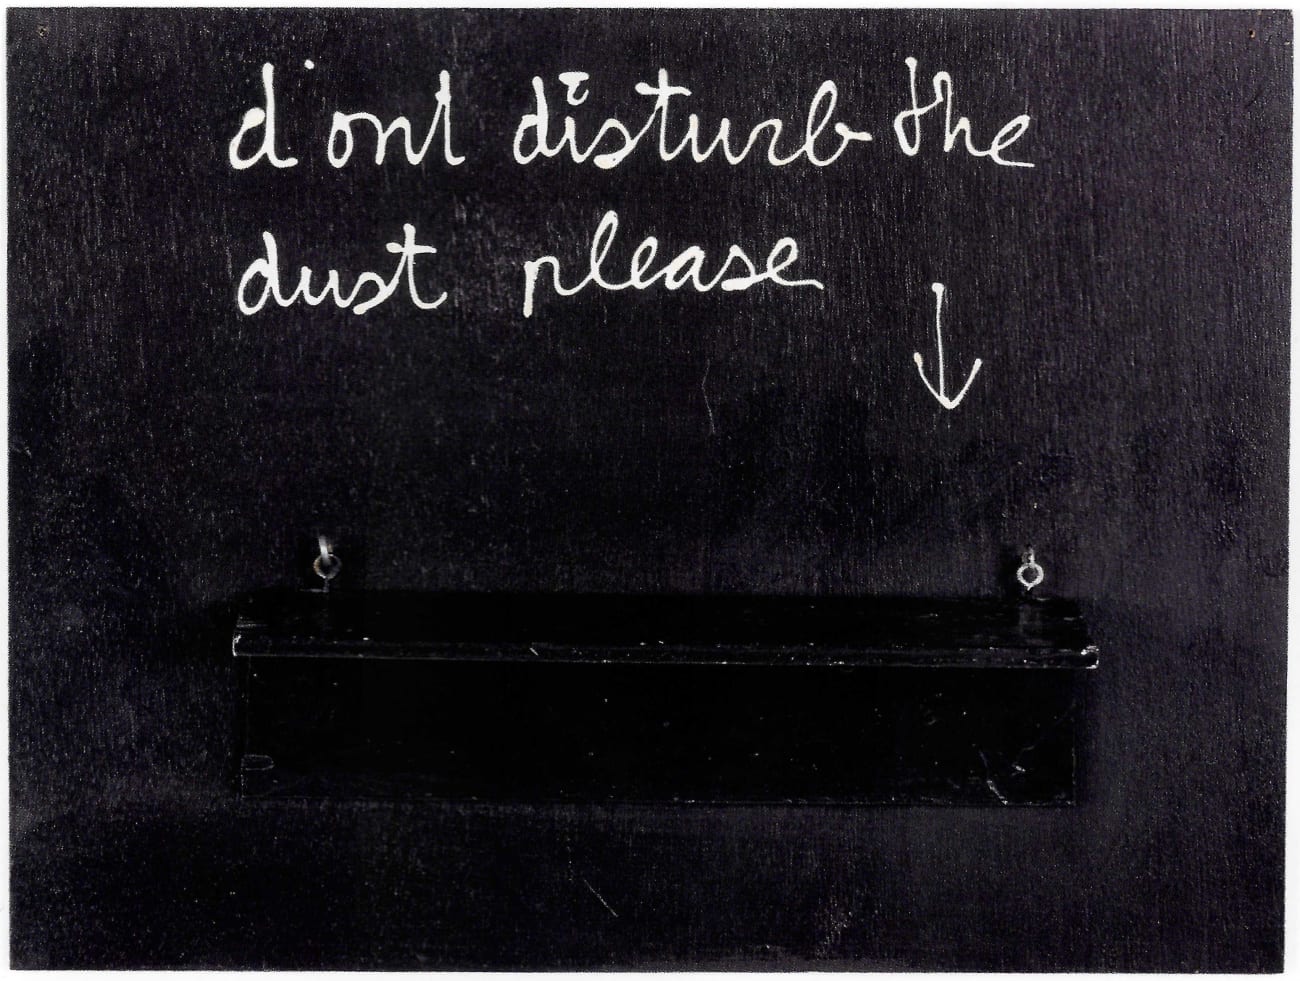 d'ont disturb the
dust please